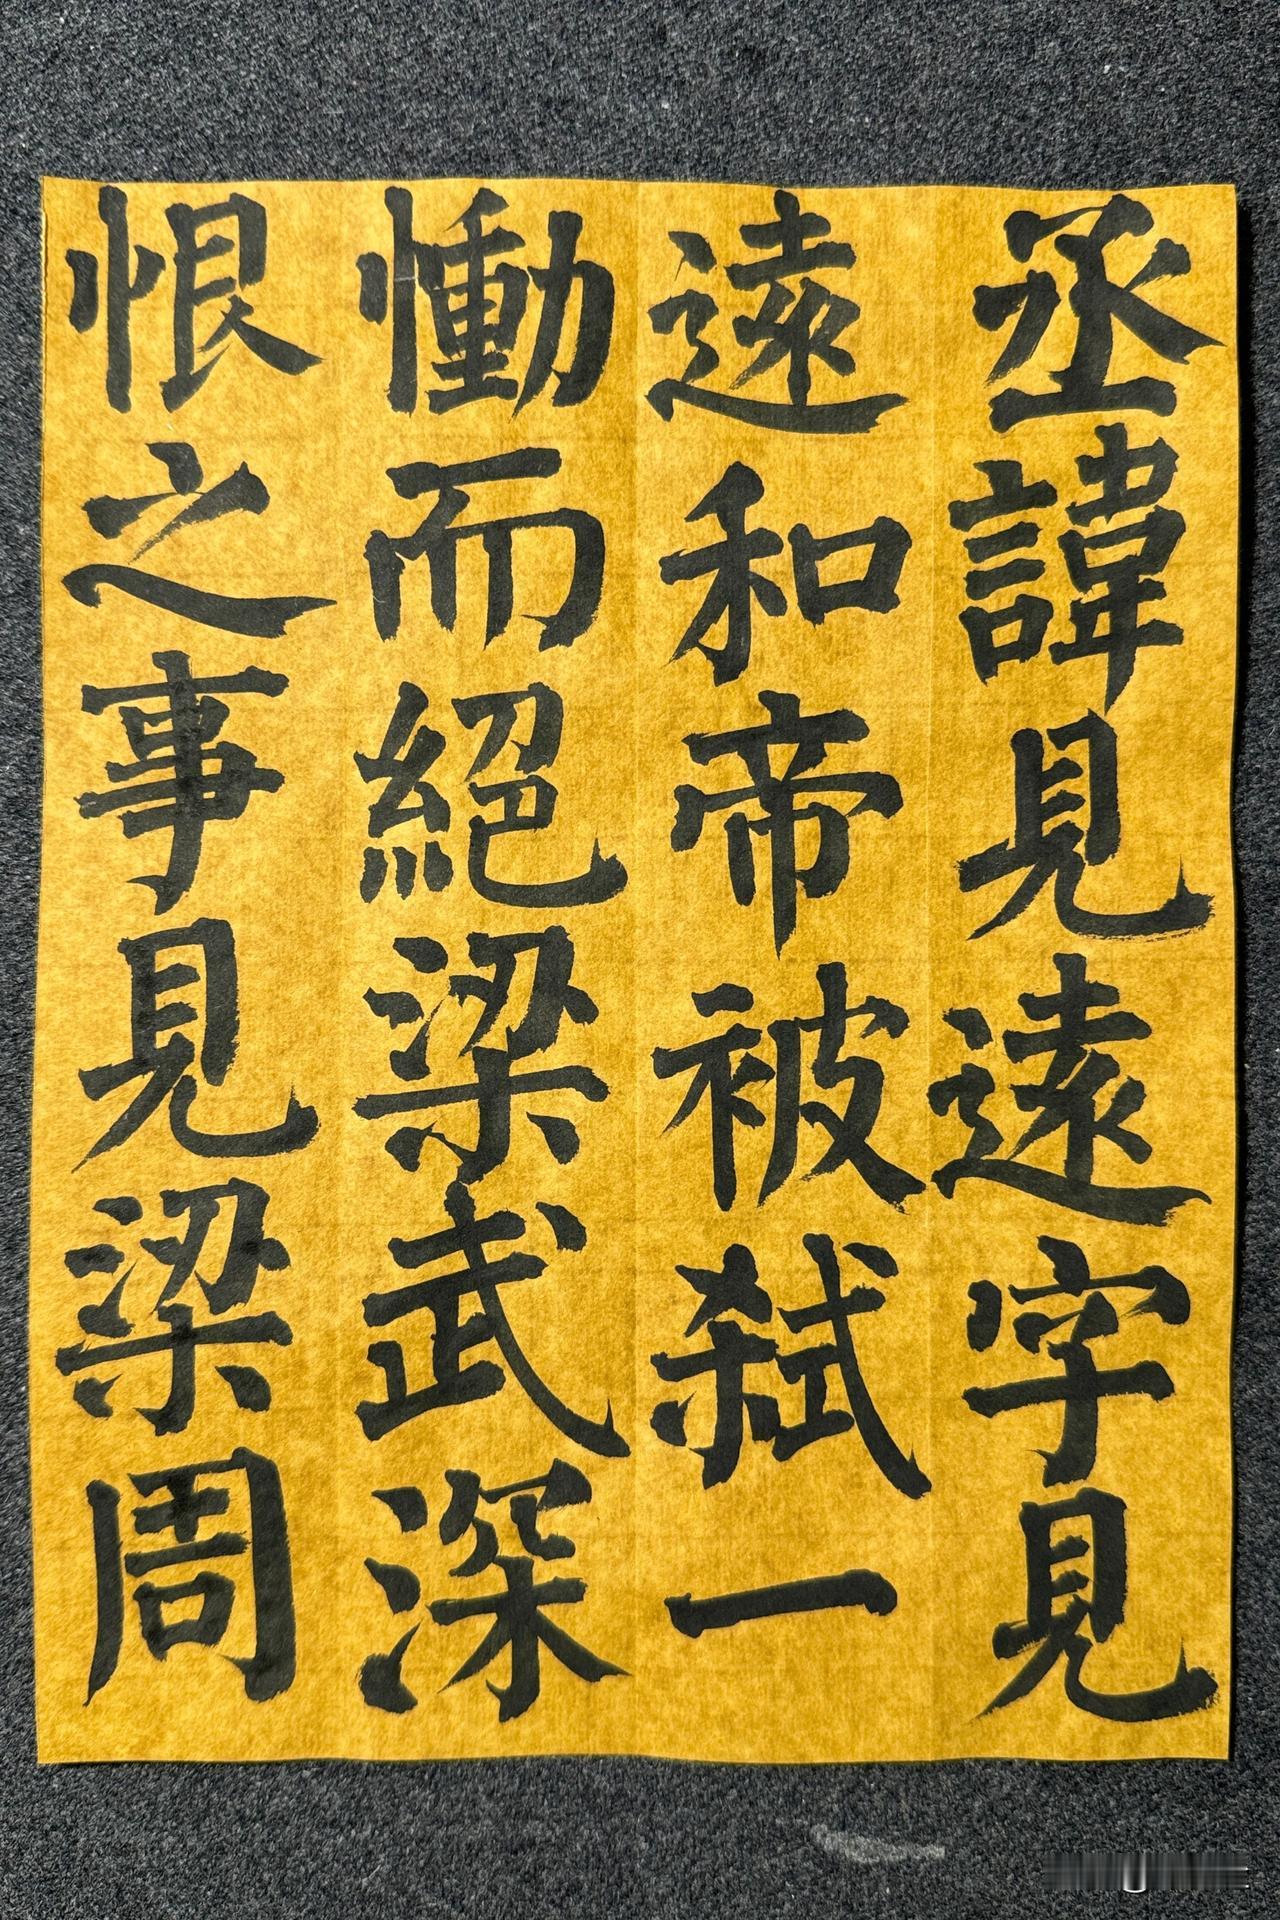 丞諱見遠字見
遠和帝被弒一
慟而絕梁武深
恨之事見梁周